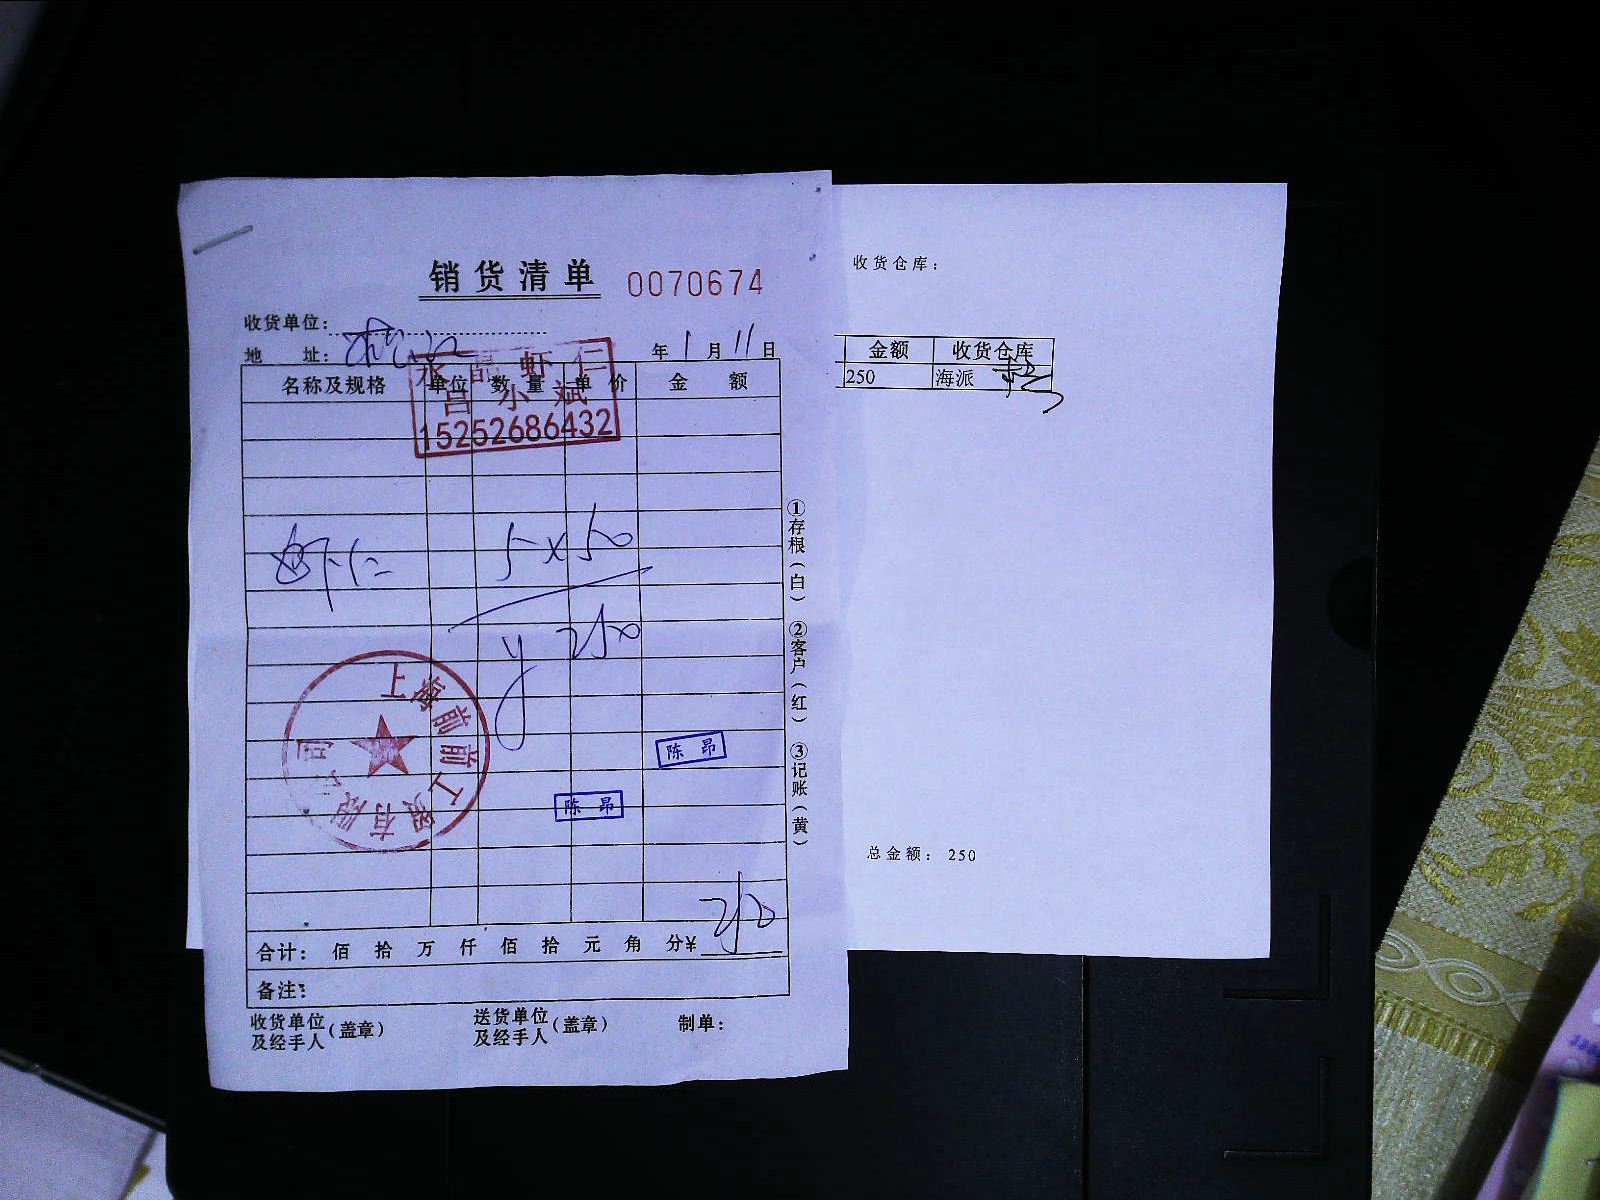 销货清单 0070674
收货单位:
地 址: 年 1 月 11 日
水晶虾仁
吕小斌
15252686432
名称及规格 单位 数量 单价 金额
虾仁 5×50
¥250
上海前前工贸有限公司
陈昂
陈昂
合计: 佰 拾 万 仟 佰 拾 元 角 分¥ 250
备注:
收货单位及经手人(盖章) 送货单位及经手人(盖章) 制单:
①存根(白) ②客户(红) ③记账(黄)
收货仓库:
金额 收货仓库
250 海派
总金额: 250